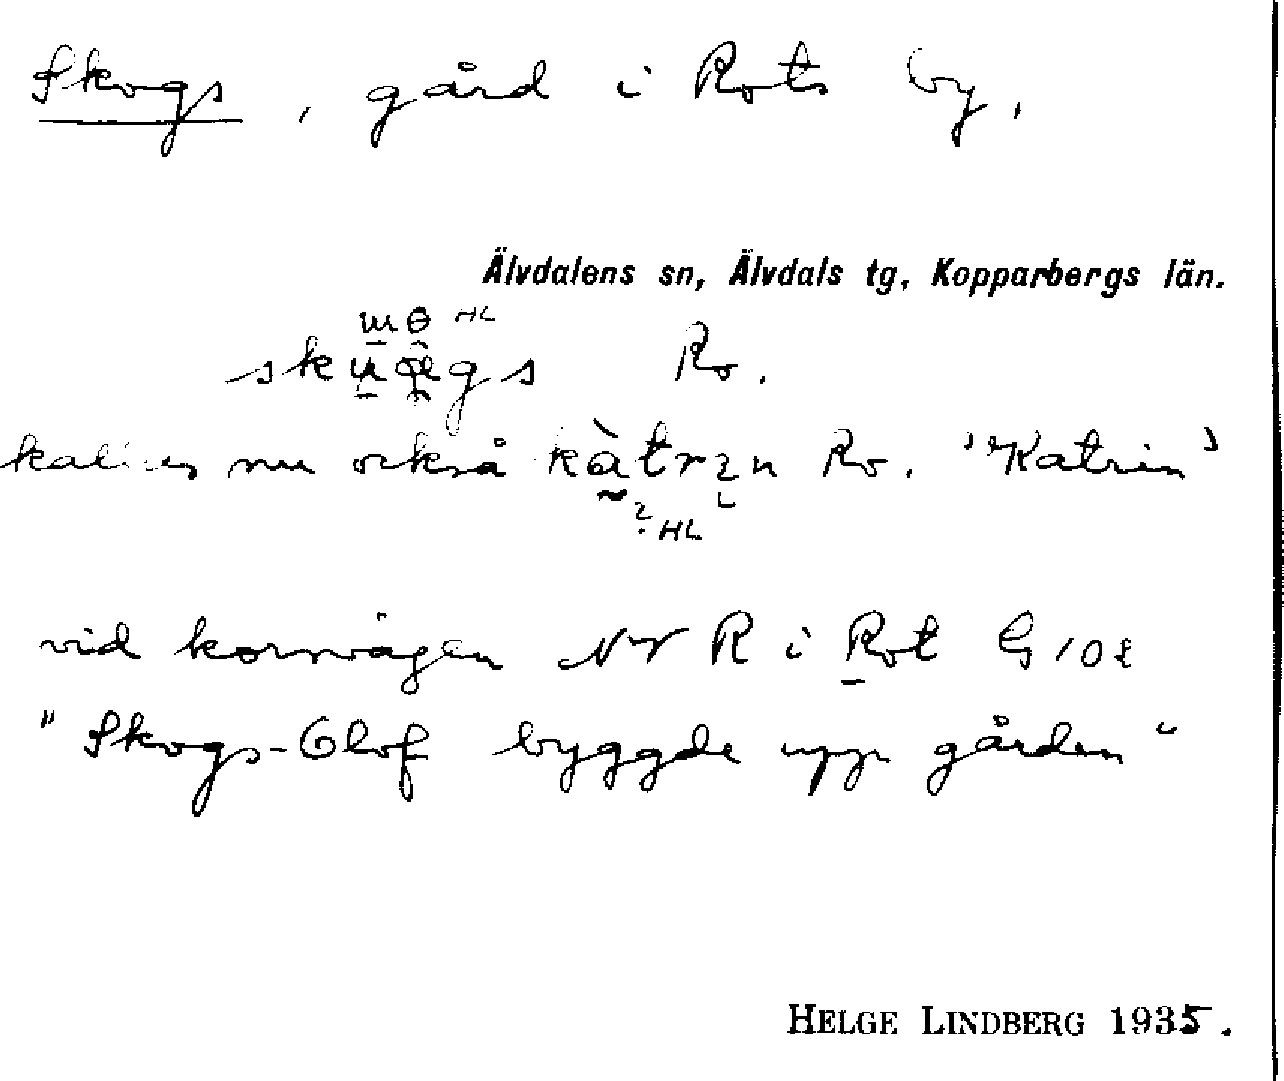 Skogs, gård i Rots by,
Älvdalens sn, Älvdals tg, Kopparbergs län.
HL
Ro.
kallas nu också Ro. 'Katrin'
? HL
vid korsvägen NV R i Rot G 10 t
"Skogs-Olof byggde upp gården"
HELGE LINDBERG 1935.